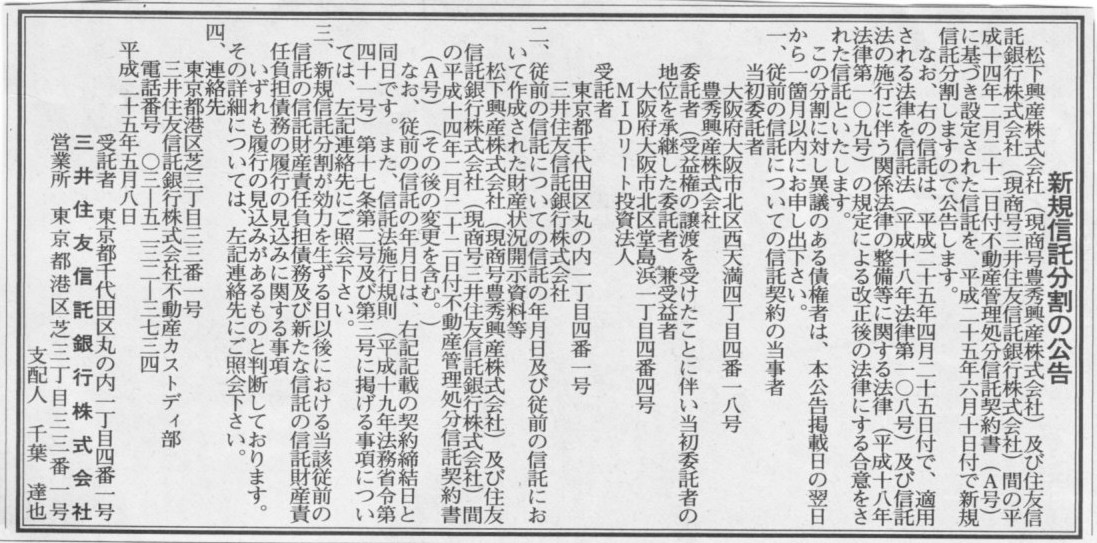 新規信託分割の公告
松下興産株式会社（現商号豊秀興産株式会社）及び住友信
託銀行株式会社（現商号三井住友信託銀行株式会社）間の平
成十四年二月二十二日付不動産管理処分信託契約書（Ａ号）
に基づき設定された信託を、平成二十五年六月十日付で新規
信託分割しますので公告します。
なお、右の信託は、平成二十五年四月二十五日付で、適用
される法律を信託法（平成十八年法律第一〇八号）及び信託
法の施行に伴う関係法律の整備等に関する法律（平成十八年
法律第一〇九号）の規定による改正後の法律にする合意をさ
れた信託といたします。
この分割に対し異議のある債権者は、本公告掲載日の翌日
から一箇月以内にお申し出下さい。
一、従前の信託についての信託契約の当事者
当初委託者
大阪府大阪市北区西天満四丁目四番一八号
豊秀興産株式会社
委託者（受益権の譲渡を受けたことに伴い当初委託者の
地位を承継した委託者）兼受益者
大阪府大阪市北区堂島浜一丁目四番四号
ＭＩＤリート投資法人
受託者
東京都千代田区丸の内一丁目四番一号
三井住友信託銀行株式会社
二、従前の信託についての信託の年月日及び従前の信託にお
いて作成された財産状況開示資料等
松下興産株式会社（現商号豊秀興産株式会社）及び住友
信託銀行株式会社（現商号三井住友信託銀行株式会社）間
の平成十四年二月二十二日付不動産管理処分信託契約書
（Ａ号）（その後の変更を含む。）
なお、従前の信託の年月日は、右記記載の契約締結日と
同日です。また、信託法施行規則（平成十九年法務省令第
四十一号）第十七条第二号及び第三号に掲げる事項につい
ては、左記連絡先にご照会下さい。
三、新規信託分割が効力を生ずる日以後における当該従前の
信託の信託財産責任負担債務及び新たな信託の信託財産責
任負担債務の履行の見込みに関する事項
いずれも履行の見込みがあるものと判断しております。
その詳細については、左記連絡先にご照会下さい。
四、連絡先
東京都港区芝三丁目三三番一号
三井住友信託銀行株式会社不動産カストディ部
電話番号　〇三―五二三二―三七三四
平成二十五年五月八日
受託者　東京都千代田区丸の内一丁目四番一号
三井住友信託銀行株式会社
営業所　東京都港区芝三丁目三三番一号
支配人　千葉　達也